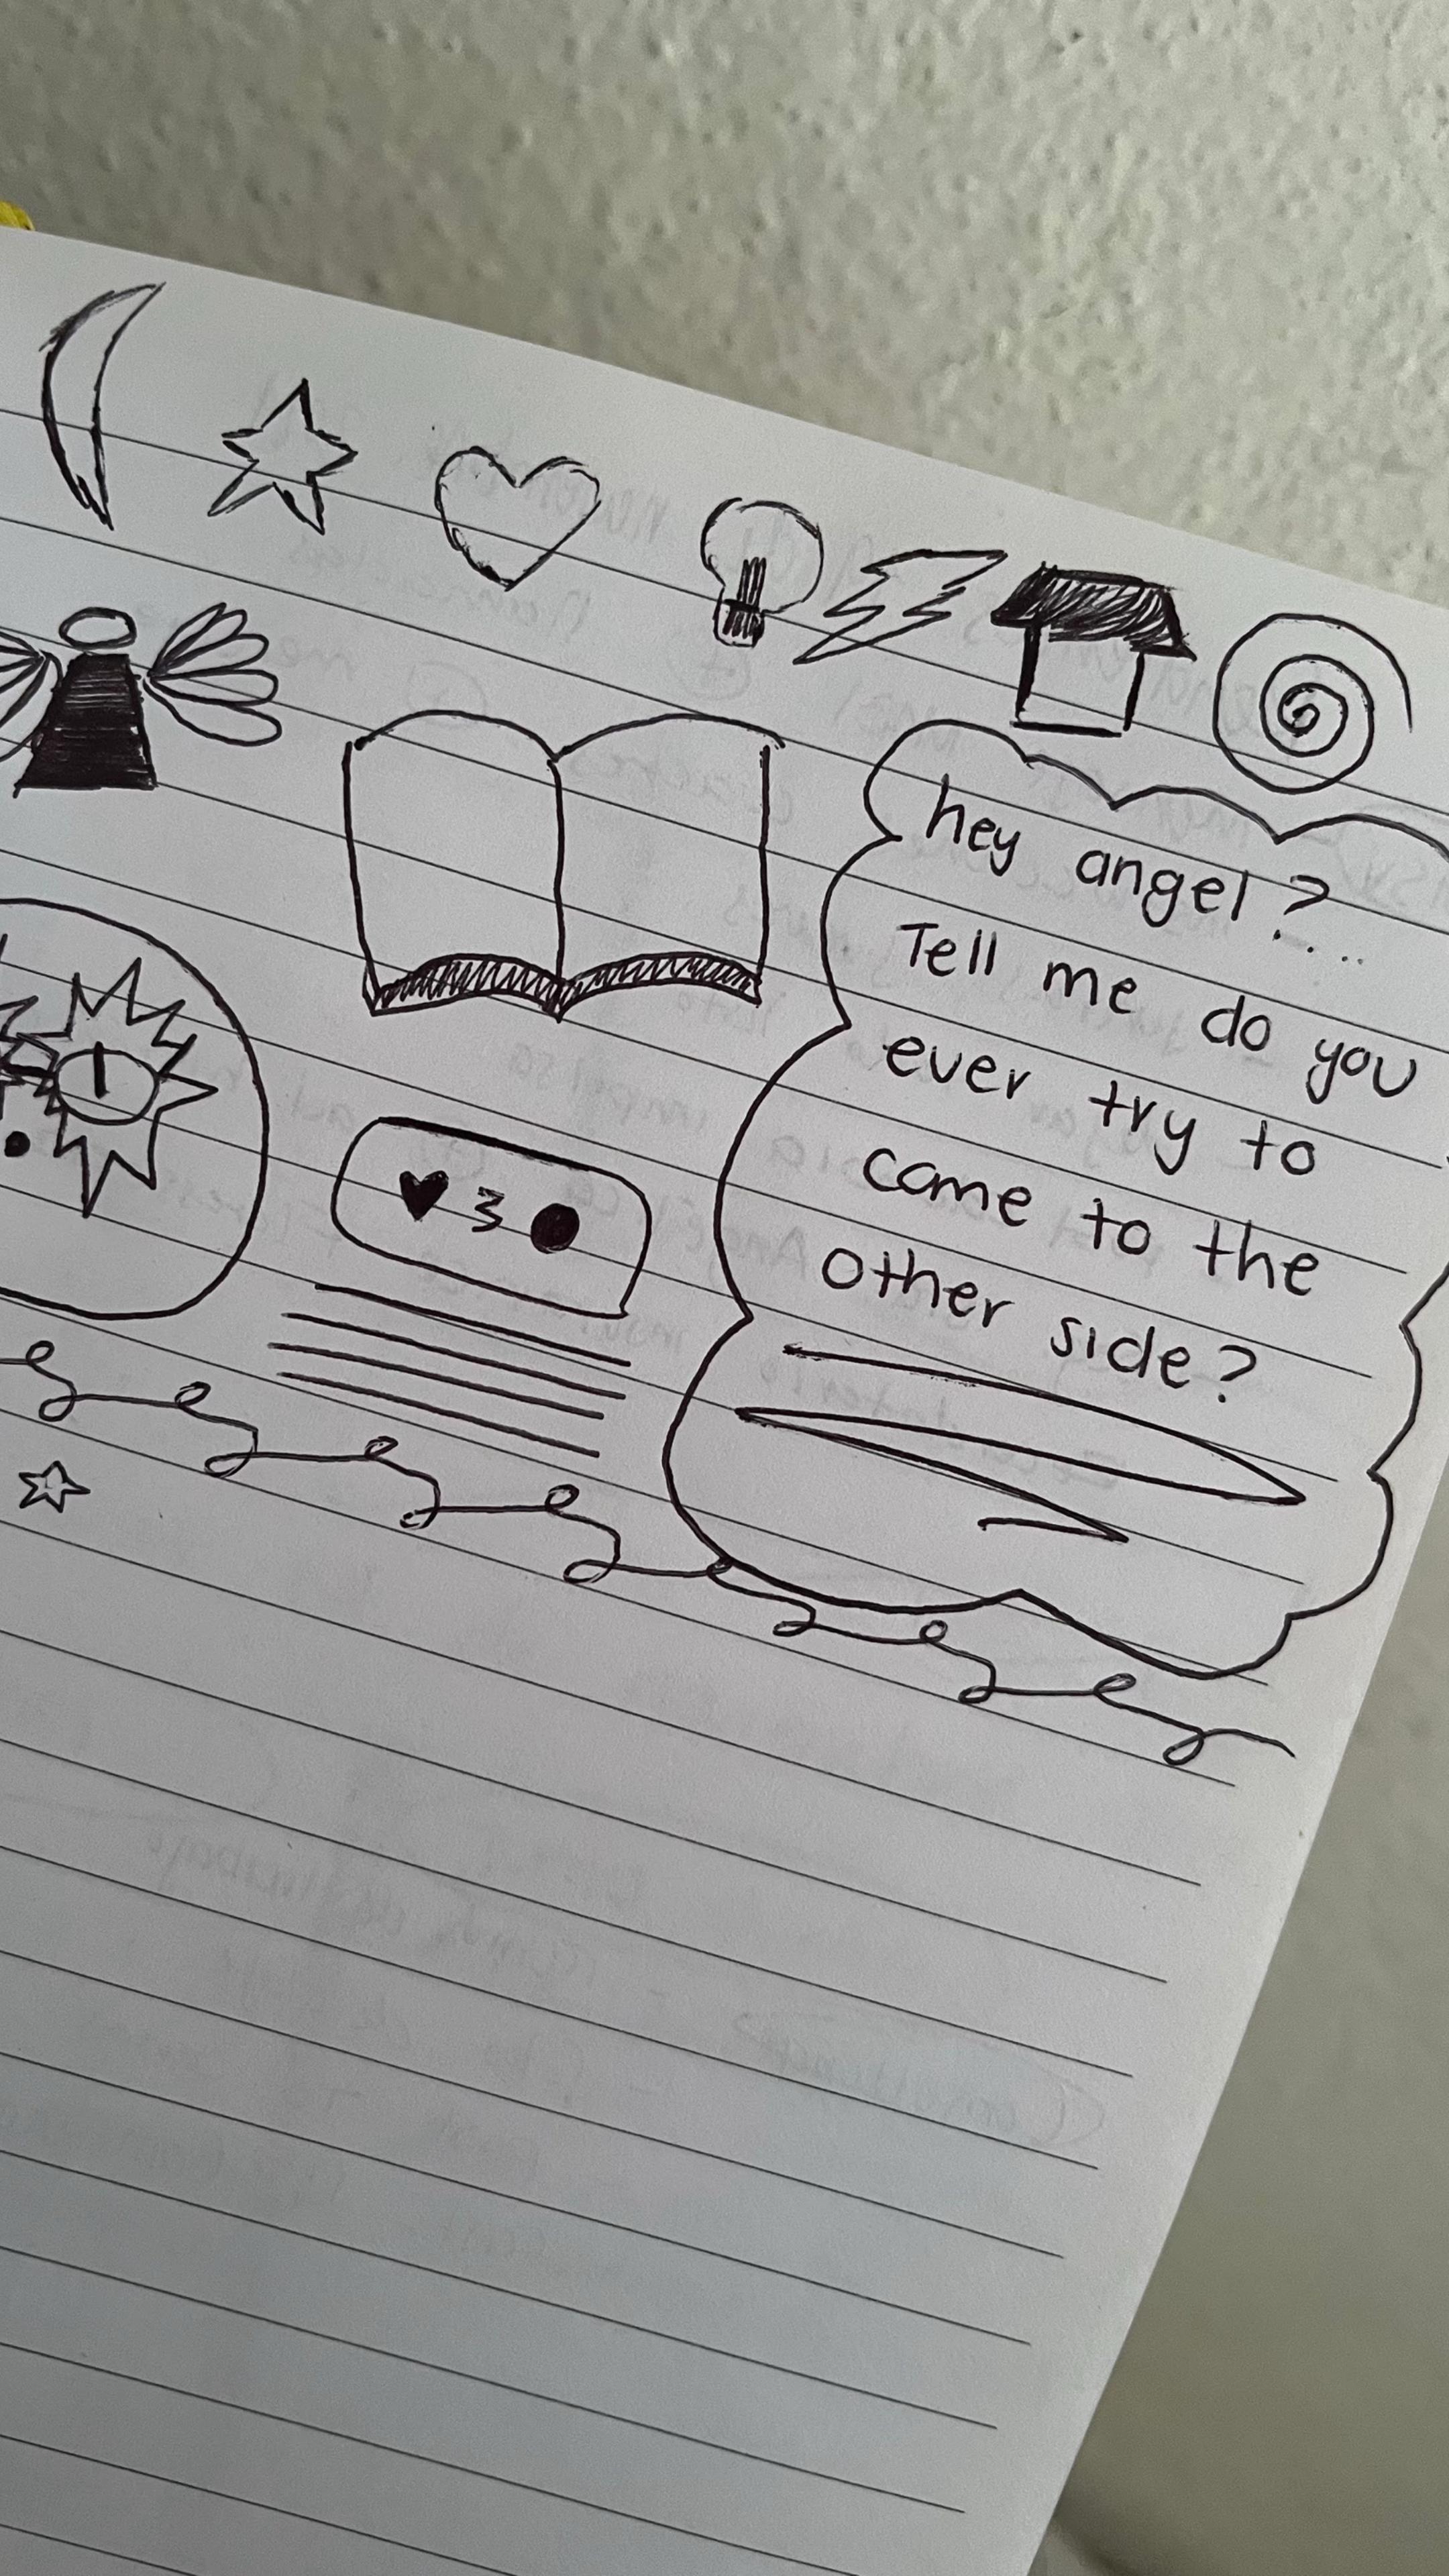 hey angel?...
Tell me do you
ever try to
come to the
other side?